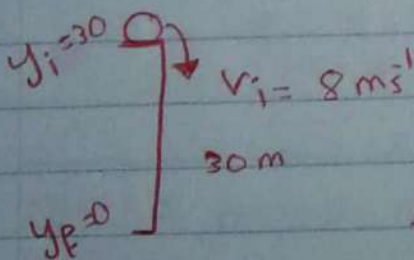 yᵢ=30
vᵢ = 8 ms⁻¹
30 m
y_f=0